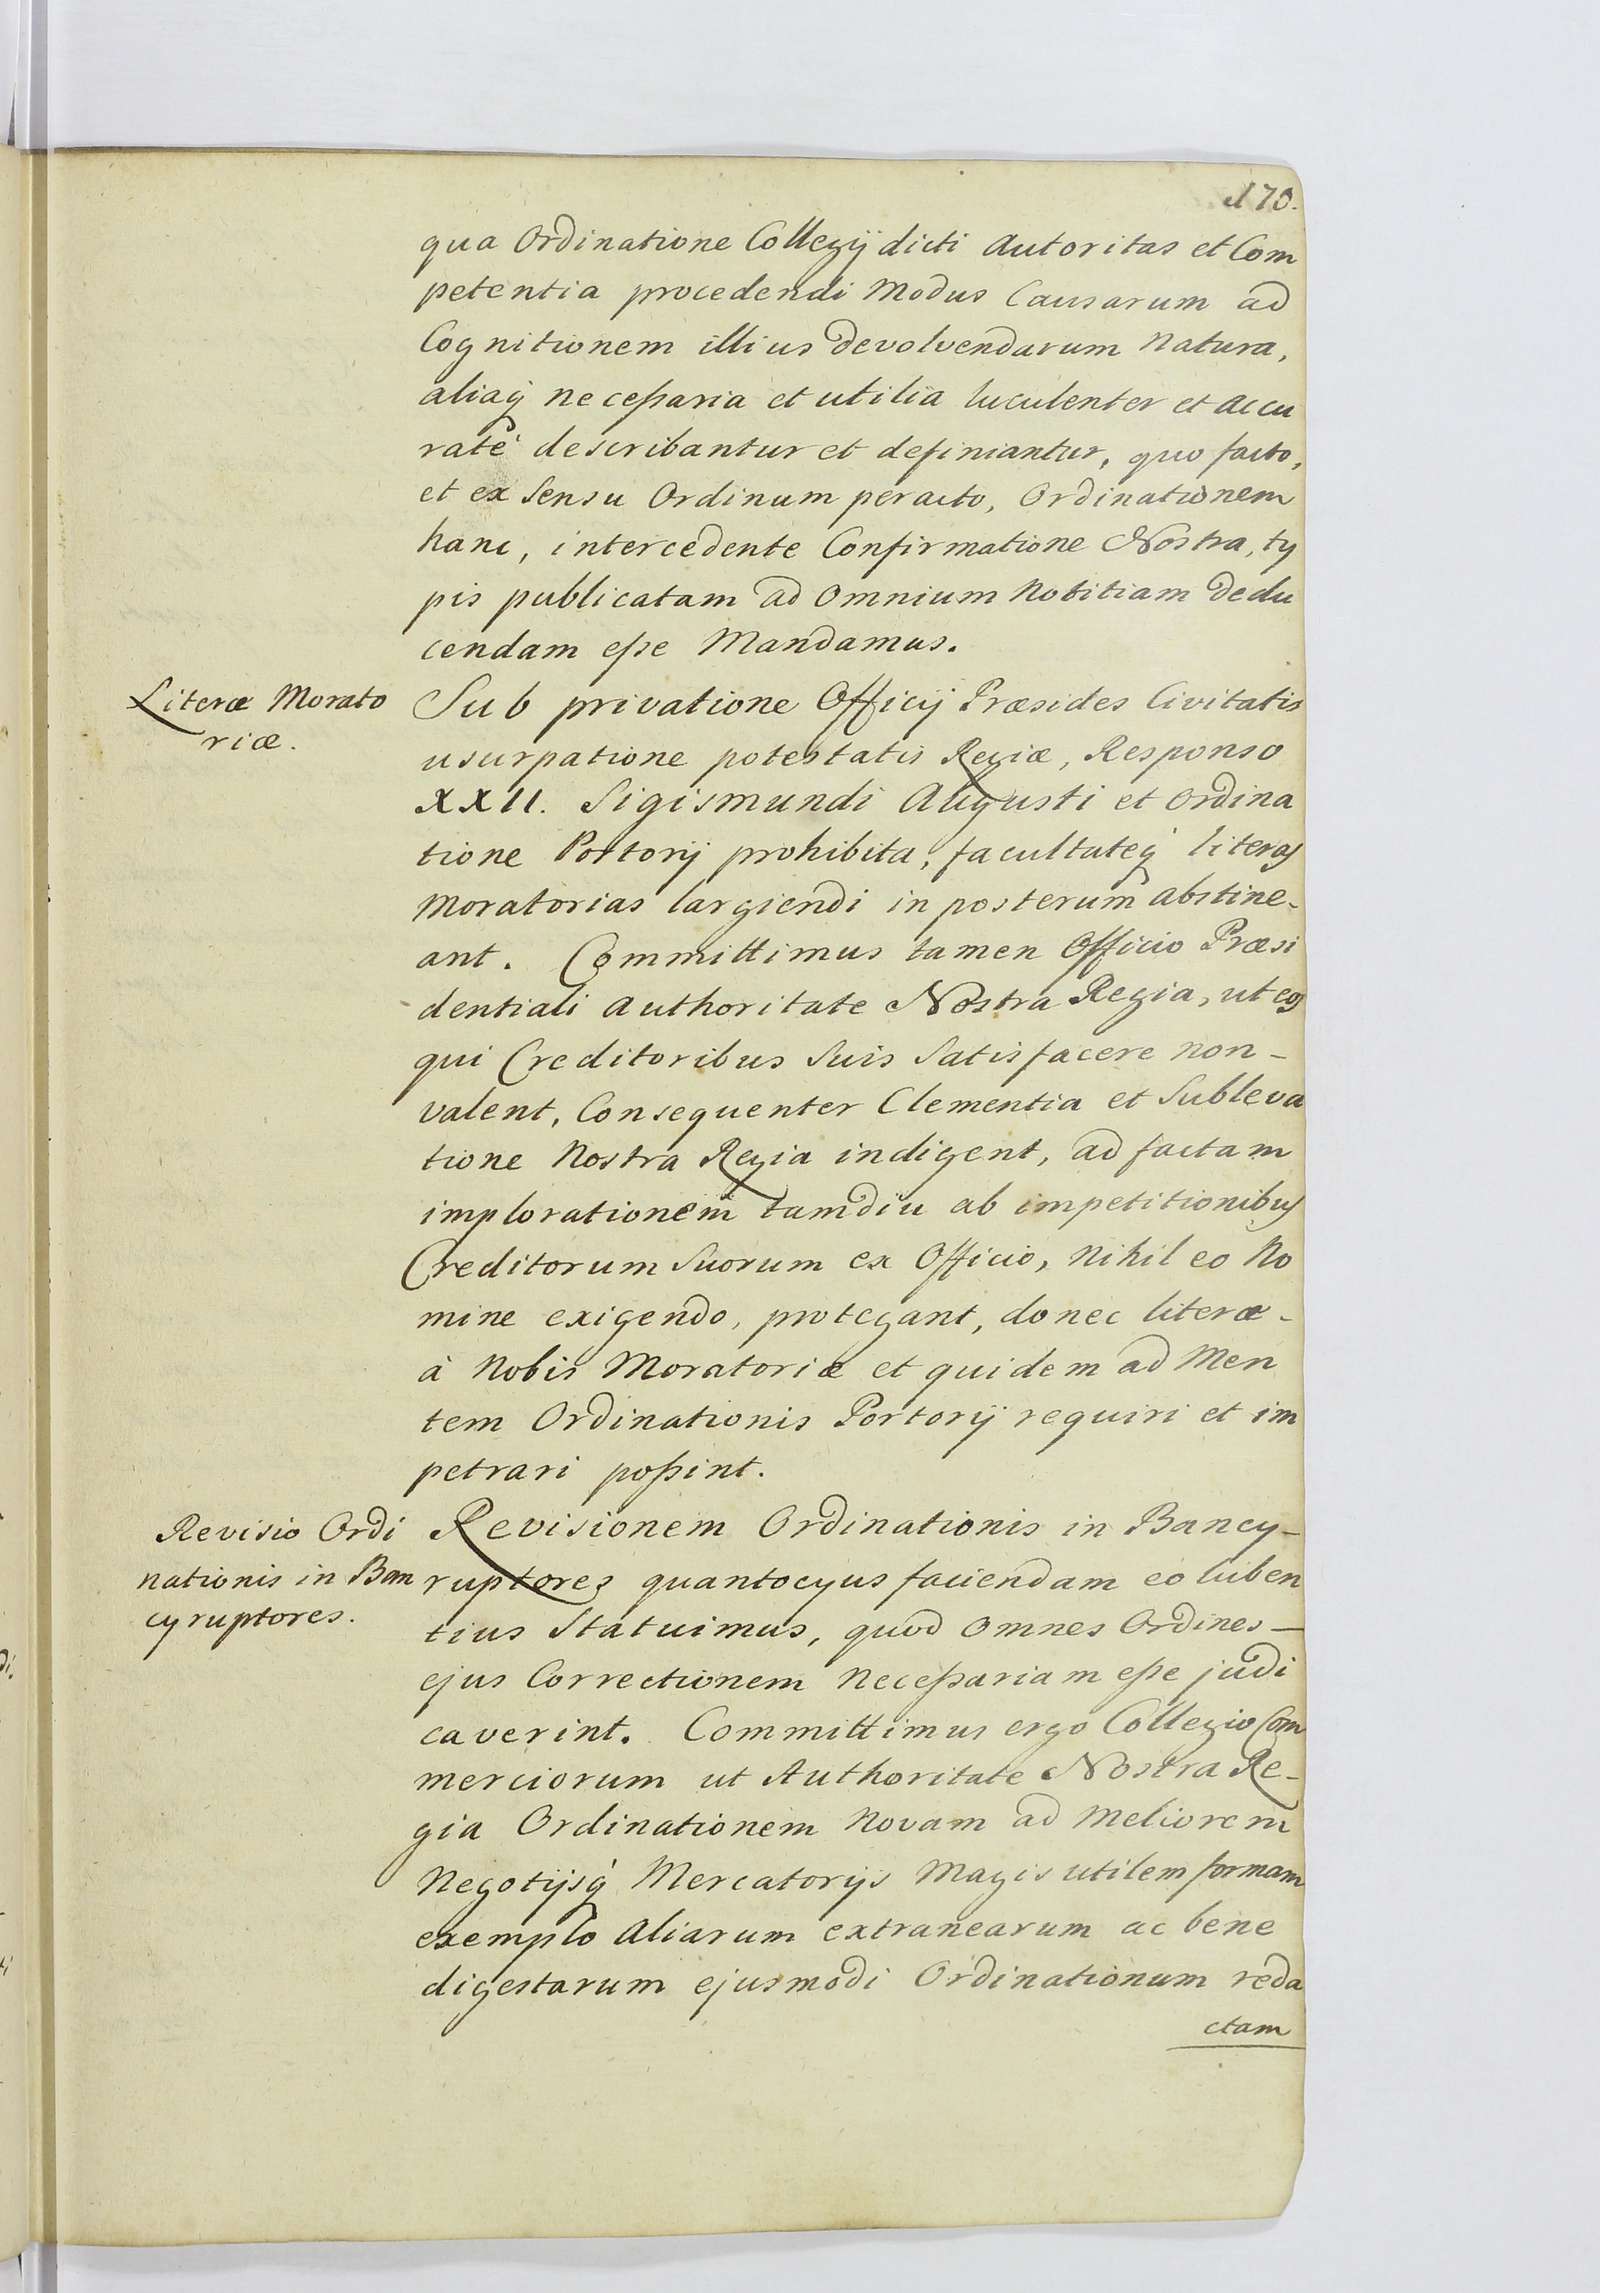 170.
qua Ordinatione Collegij dicti Autoritas et Com
petentia procedendi Modus Causarum ad
Cognitionem illius devolvendarum Natura,
aliaq̀ neceßaria et utilia luculenter et Accu
ratè describantur et definiantur, quo facto,
et ex Sensu Ordinum peracto, Ordinationem
hanc, intercedente Confirmatione Nostra, ty
pis publicatam ad Omnium Notitiam dedu
cendam eße Mandamus.
Literæ Morato
riæ.
Sub privatione Officij Præsides Civitatis
usurpatione potestatis Regiæ, Responso
XXII. Sigismundi Augusti et Ordina
tione Portorij prohibita, facultateq̀ literas
Moratorias largiendi in posterum abstine-
ant. Committimus tamen Officio Præsi
dentiali Authoritate Nostra Regia, ut eos
qui Creditoribus Suis Satisfacere non-
valent, Consequenter Clementia et Subleva
tione Nostra Regia indigent, ad factam
implorationem tamdiu ab impetitionibus
Creditorum Suorum ex Officio, Nihil eo No
mine exigendo, protegant, donec literæ-
à Nobis Moratoriæ et quidem ad Men
tem Ordinationis Portorij requiri et im
petrari poßint.
Revisio Ordi
nationis in Ban
cyruptores.
Revisionem Ordinationis in Bancy-
ruptores quantocyus faciendam eo luben
tius Statuimus, quod Omnes Ordines-
ejus Correctionem Neceßariam eße judi
caverint. Committimus ergo Collegio Com
merciorum ut Authoritate Nostra Re-
gia Ordinationem Novam ad Meliorem
Negotijsq̀ Mercatorijs Magis utilem formam
exemplo Aliarum extranearum ac bene
digestarum ejusmodi Ordinationum reda
ctam